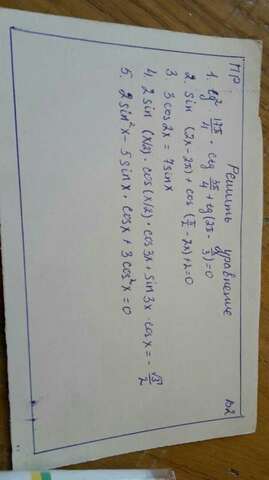 ПР: Решить уравнение В2
1. tg² 17π/4 · ctg 3π/4 + tg(2π - π/3) = 0
2. sin (2x - 2π) + cos (π/2 - 2x) + 2 = 0
3 3 cos 2x = 7 sin x
4. 2 sin (x/2) · cos (x/2) · cos 3x + sin 3x · cos x = - √3/2
5. 2 sin² x - 5 sin x · cos x + 3 cos² x = 0